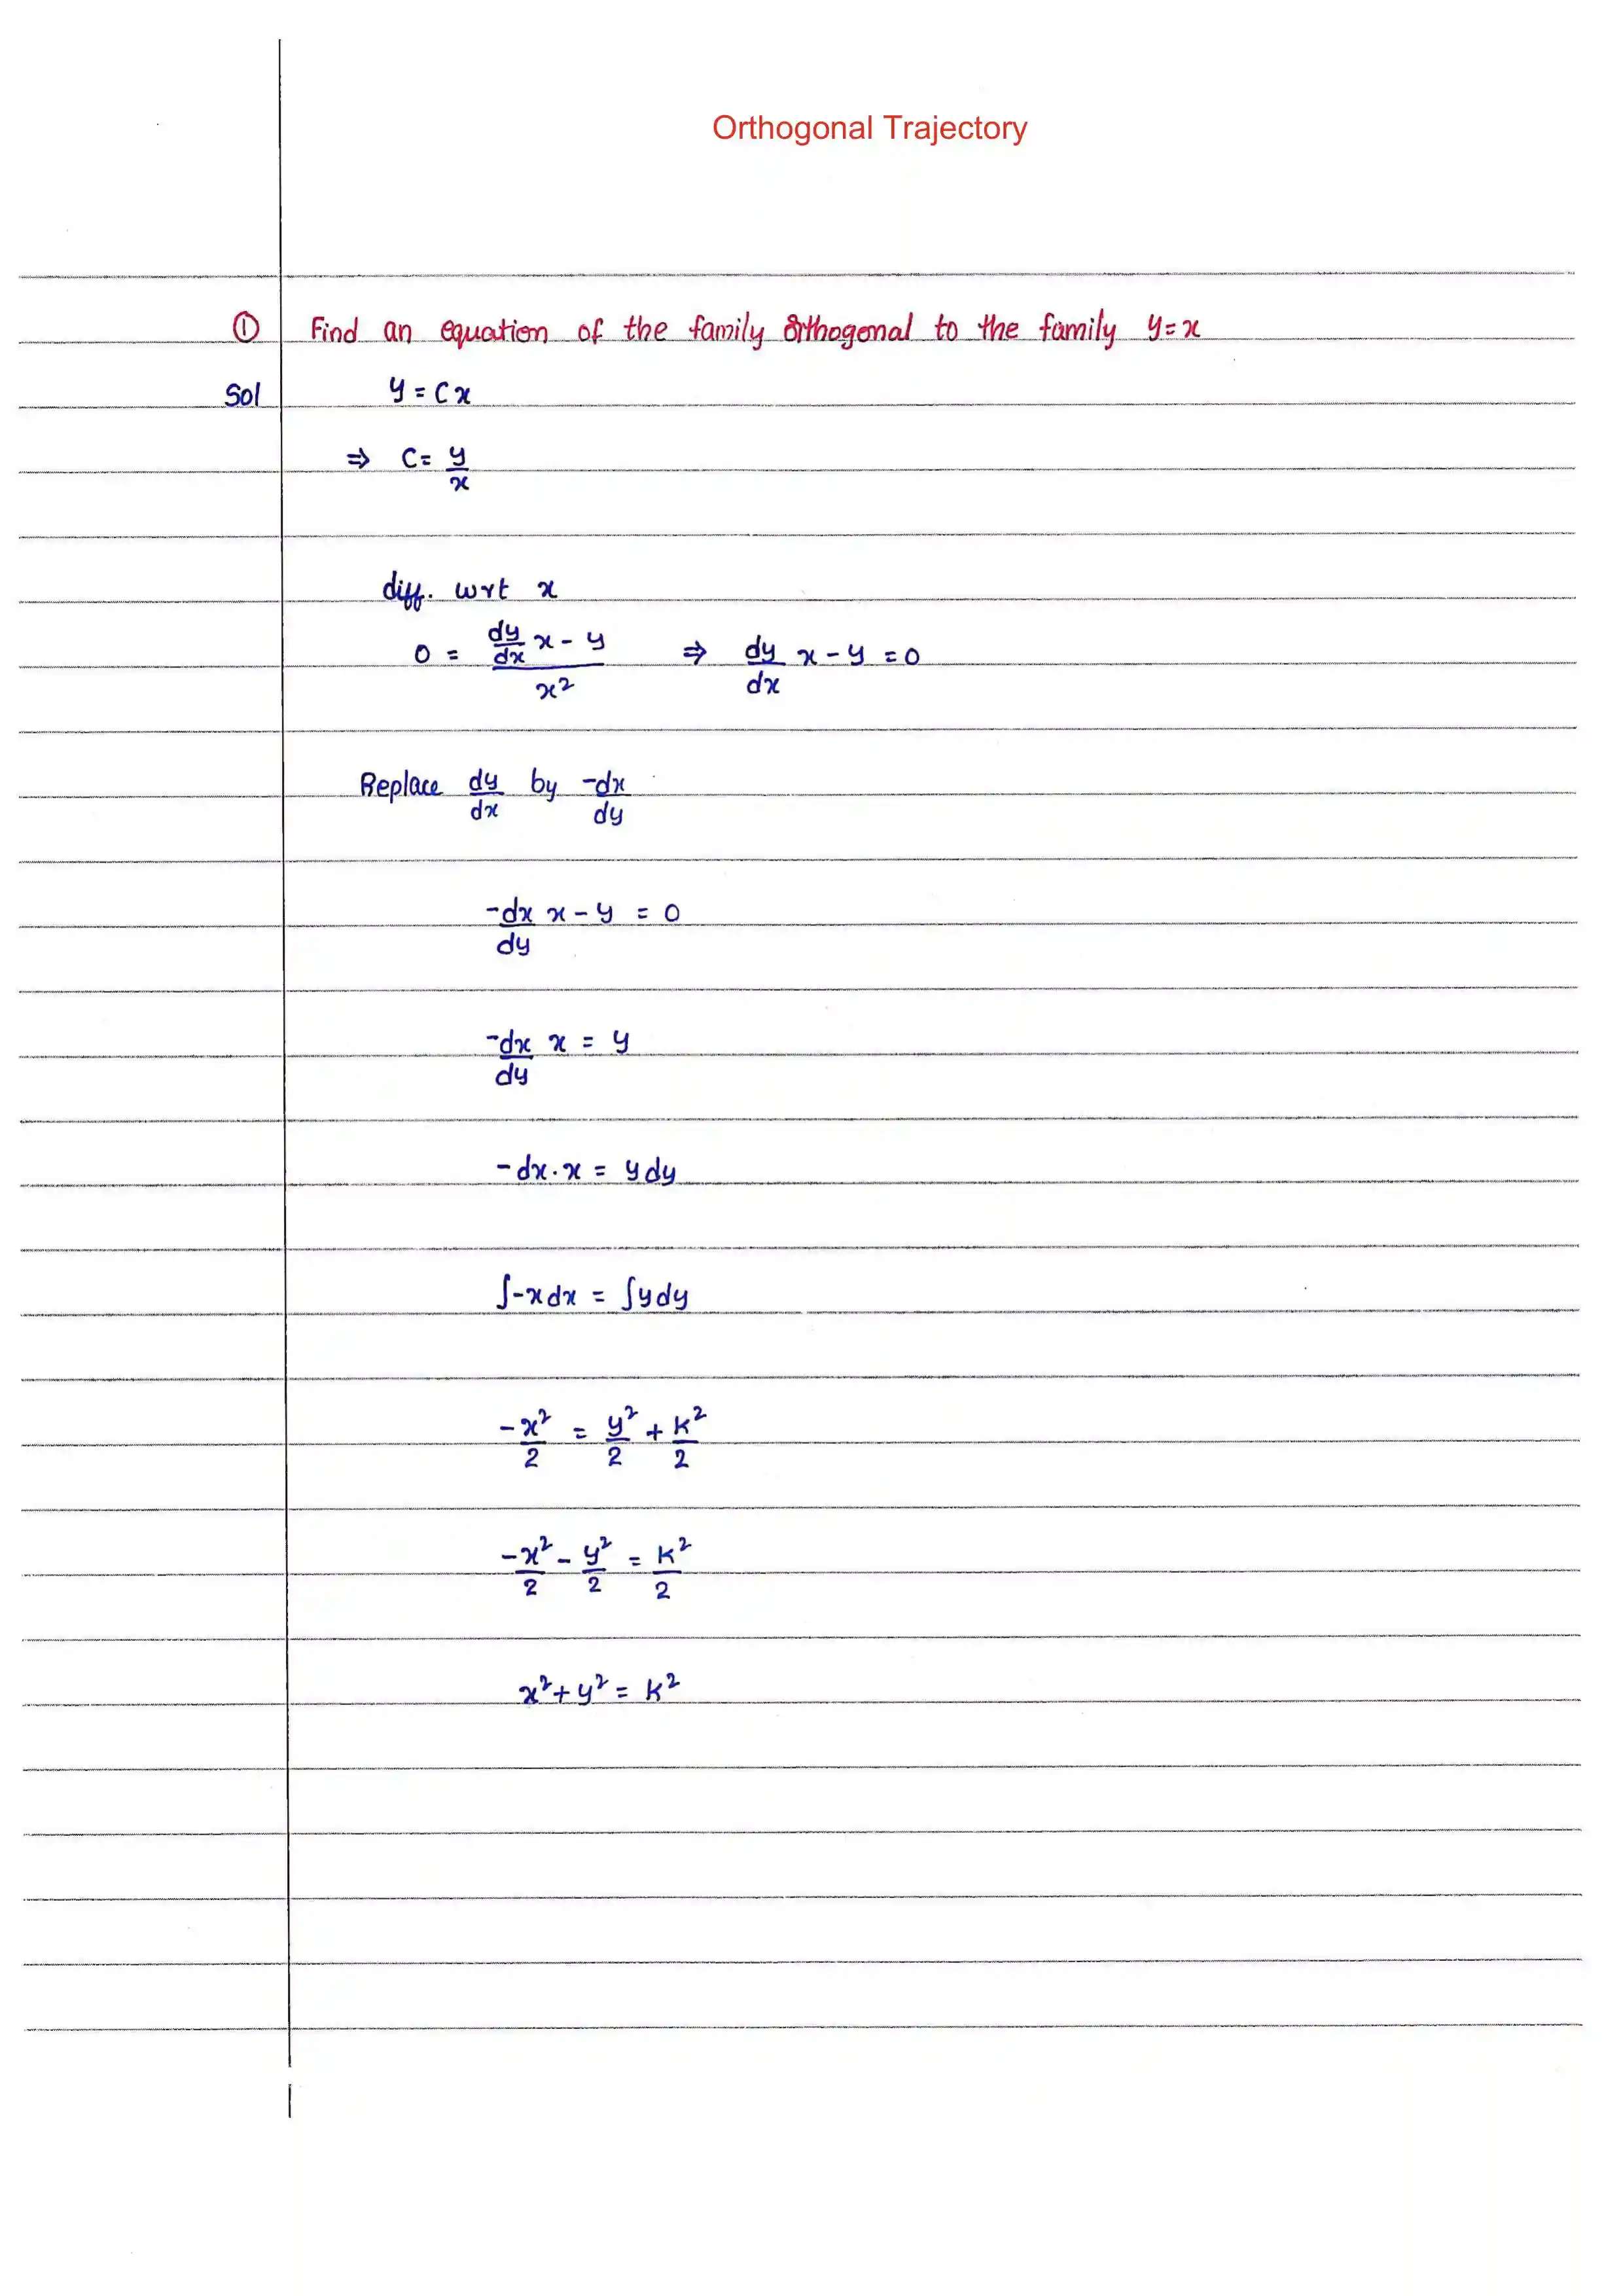 Orthogonal Trajectory
① Find an equation of the family Orthogonal to the family y=x
Sol y = Cx
⇒ C = y/x
diff. wrt x
0 = (dy/dx x - y)/x² ⇒ dy/dx x - y = 0
Replace dy/dx by -dx/dy
-dx/dy x - y = 0
-dx/dy x = y
-dx.x = ydy
∫-xdx = ∫ydy
-x²/2 = y²/2 + k²/2
-x²/2 - y²/2 = k²/2
x² + y² = k²